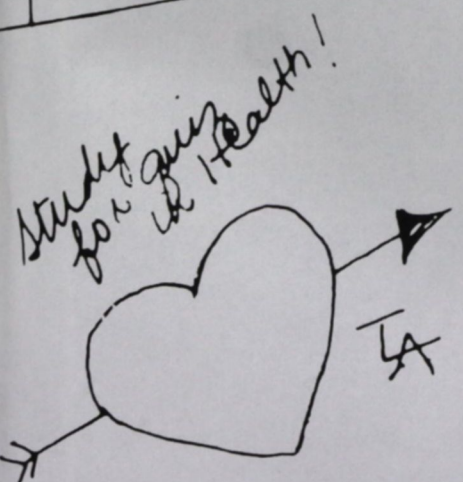 Study
for quiz
in Health!